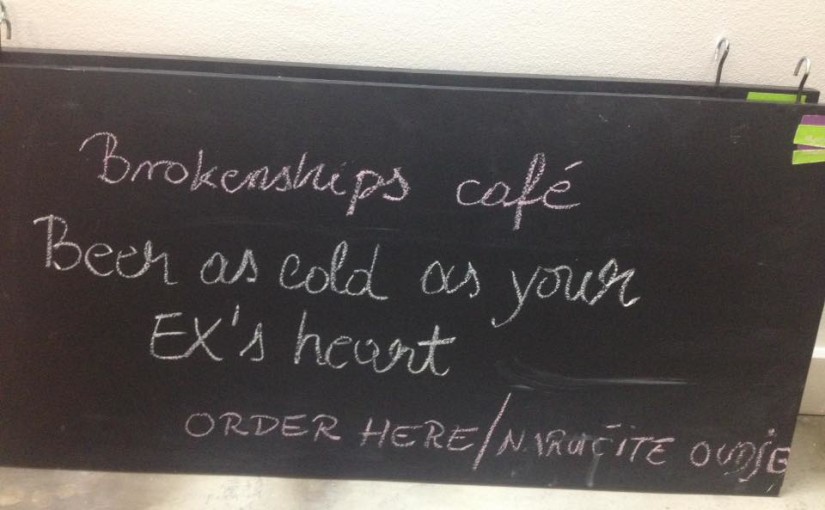 Brokenships café
Beer as cold as your
EX's heart
ORDER HERE/NARUČITE OVDJE